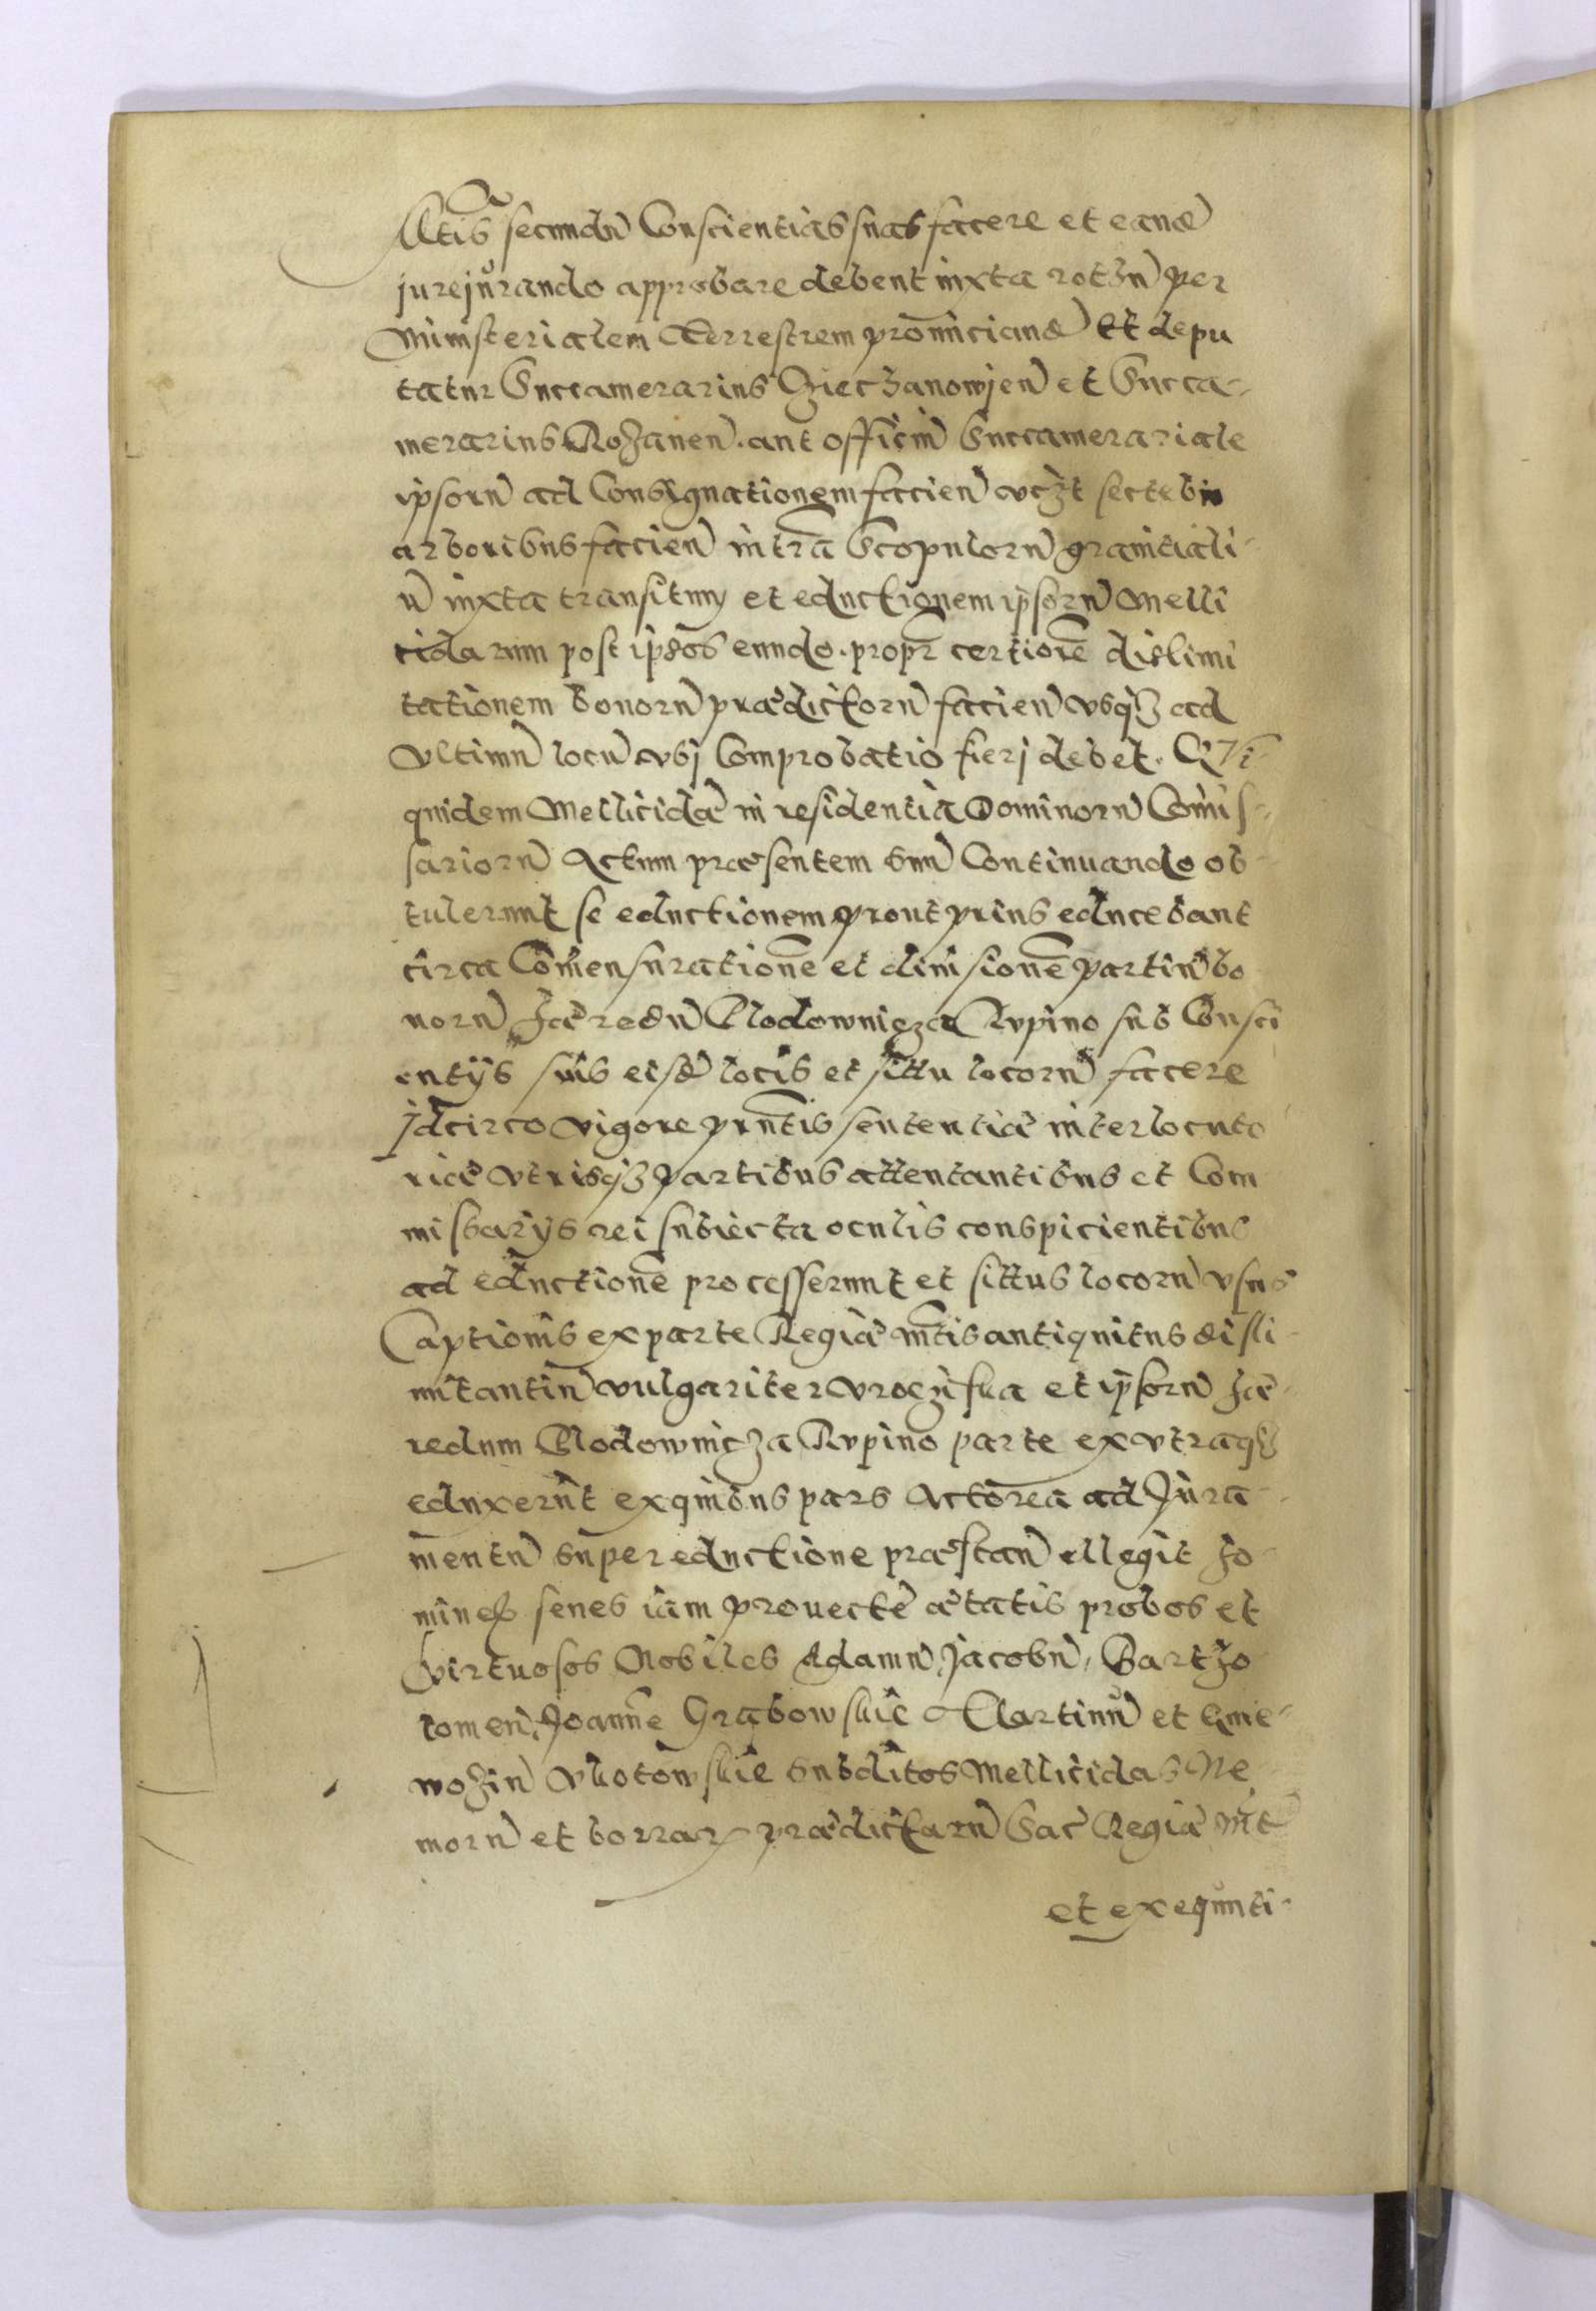 Mtis secundu Conscientias suas facere et eande
jurejurando approbare debent iuxta rothu per
Ministerialem Terrestrem pronunciand Et depu
tatur Succamerarius Cziechanowien et Succa-
merarius Rozanen. aut officiu Succamerariale
ipsoru ad Consignationem facien
arboribus facien intra Scopuloru graniciali-
u iuxta transitum et eductionem ipsoru Melli
cidarum post ipsos eundo. propr certiore dislimi
tationem bonoru prædictoru facien usq3 ad
Vltimu locu vbj Comprobatio fierj debet. QVi-
quidem Mellicidæ in residentia Dominoru Comis-
sarioru Actum præsentem suu Continuando ob-
tulerunt se eductionem prout prius educebant
circa Comensuratione et diuisione partiu bo
noru hæredu Mlodownicza Rvpino sub Consci
entijs suis eisd locis et sittu locoru facere
jdcirco vigore prntis sententiæ interlocuto
riæ vtrisq3 partibus attentantibus et Com
missarijs rei subiecta oculis conspicientibus
ad eductione processerunt et sittus locoru vsus
Captionis ex parte Regiæ Mtis antiquitus disli-
mitantiu vulgariter vroczyska et ipsoru hæ-
redum Mlodownicza Rvpino parte ex vtraq3
eduxerut exquibus pars Actorea ad Jura-
mentu super eductione præstan ellegit ho-
mines senes iam prouectæ ætatis probos et
Virtuosos Nobiles Adamu, Jacobu, Bartho-
lomeu, Joanne Grabowskie Martinu et Gnie-
wossiu Vkotowskie subditos Mellicidas Ne
moru et borrar prædictaru Sac Regiæ Mt
et exequuti-